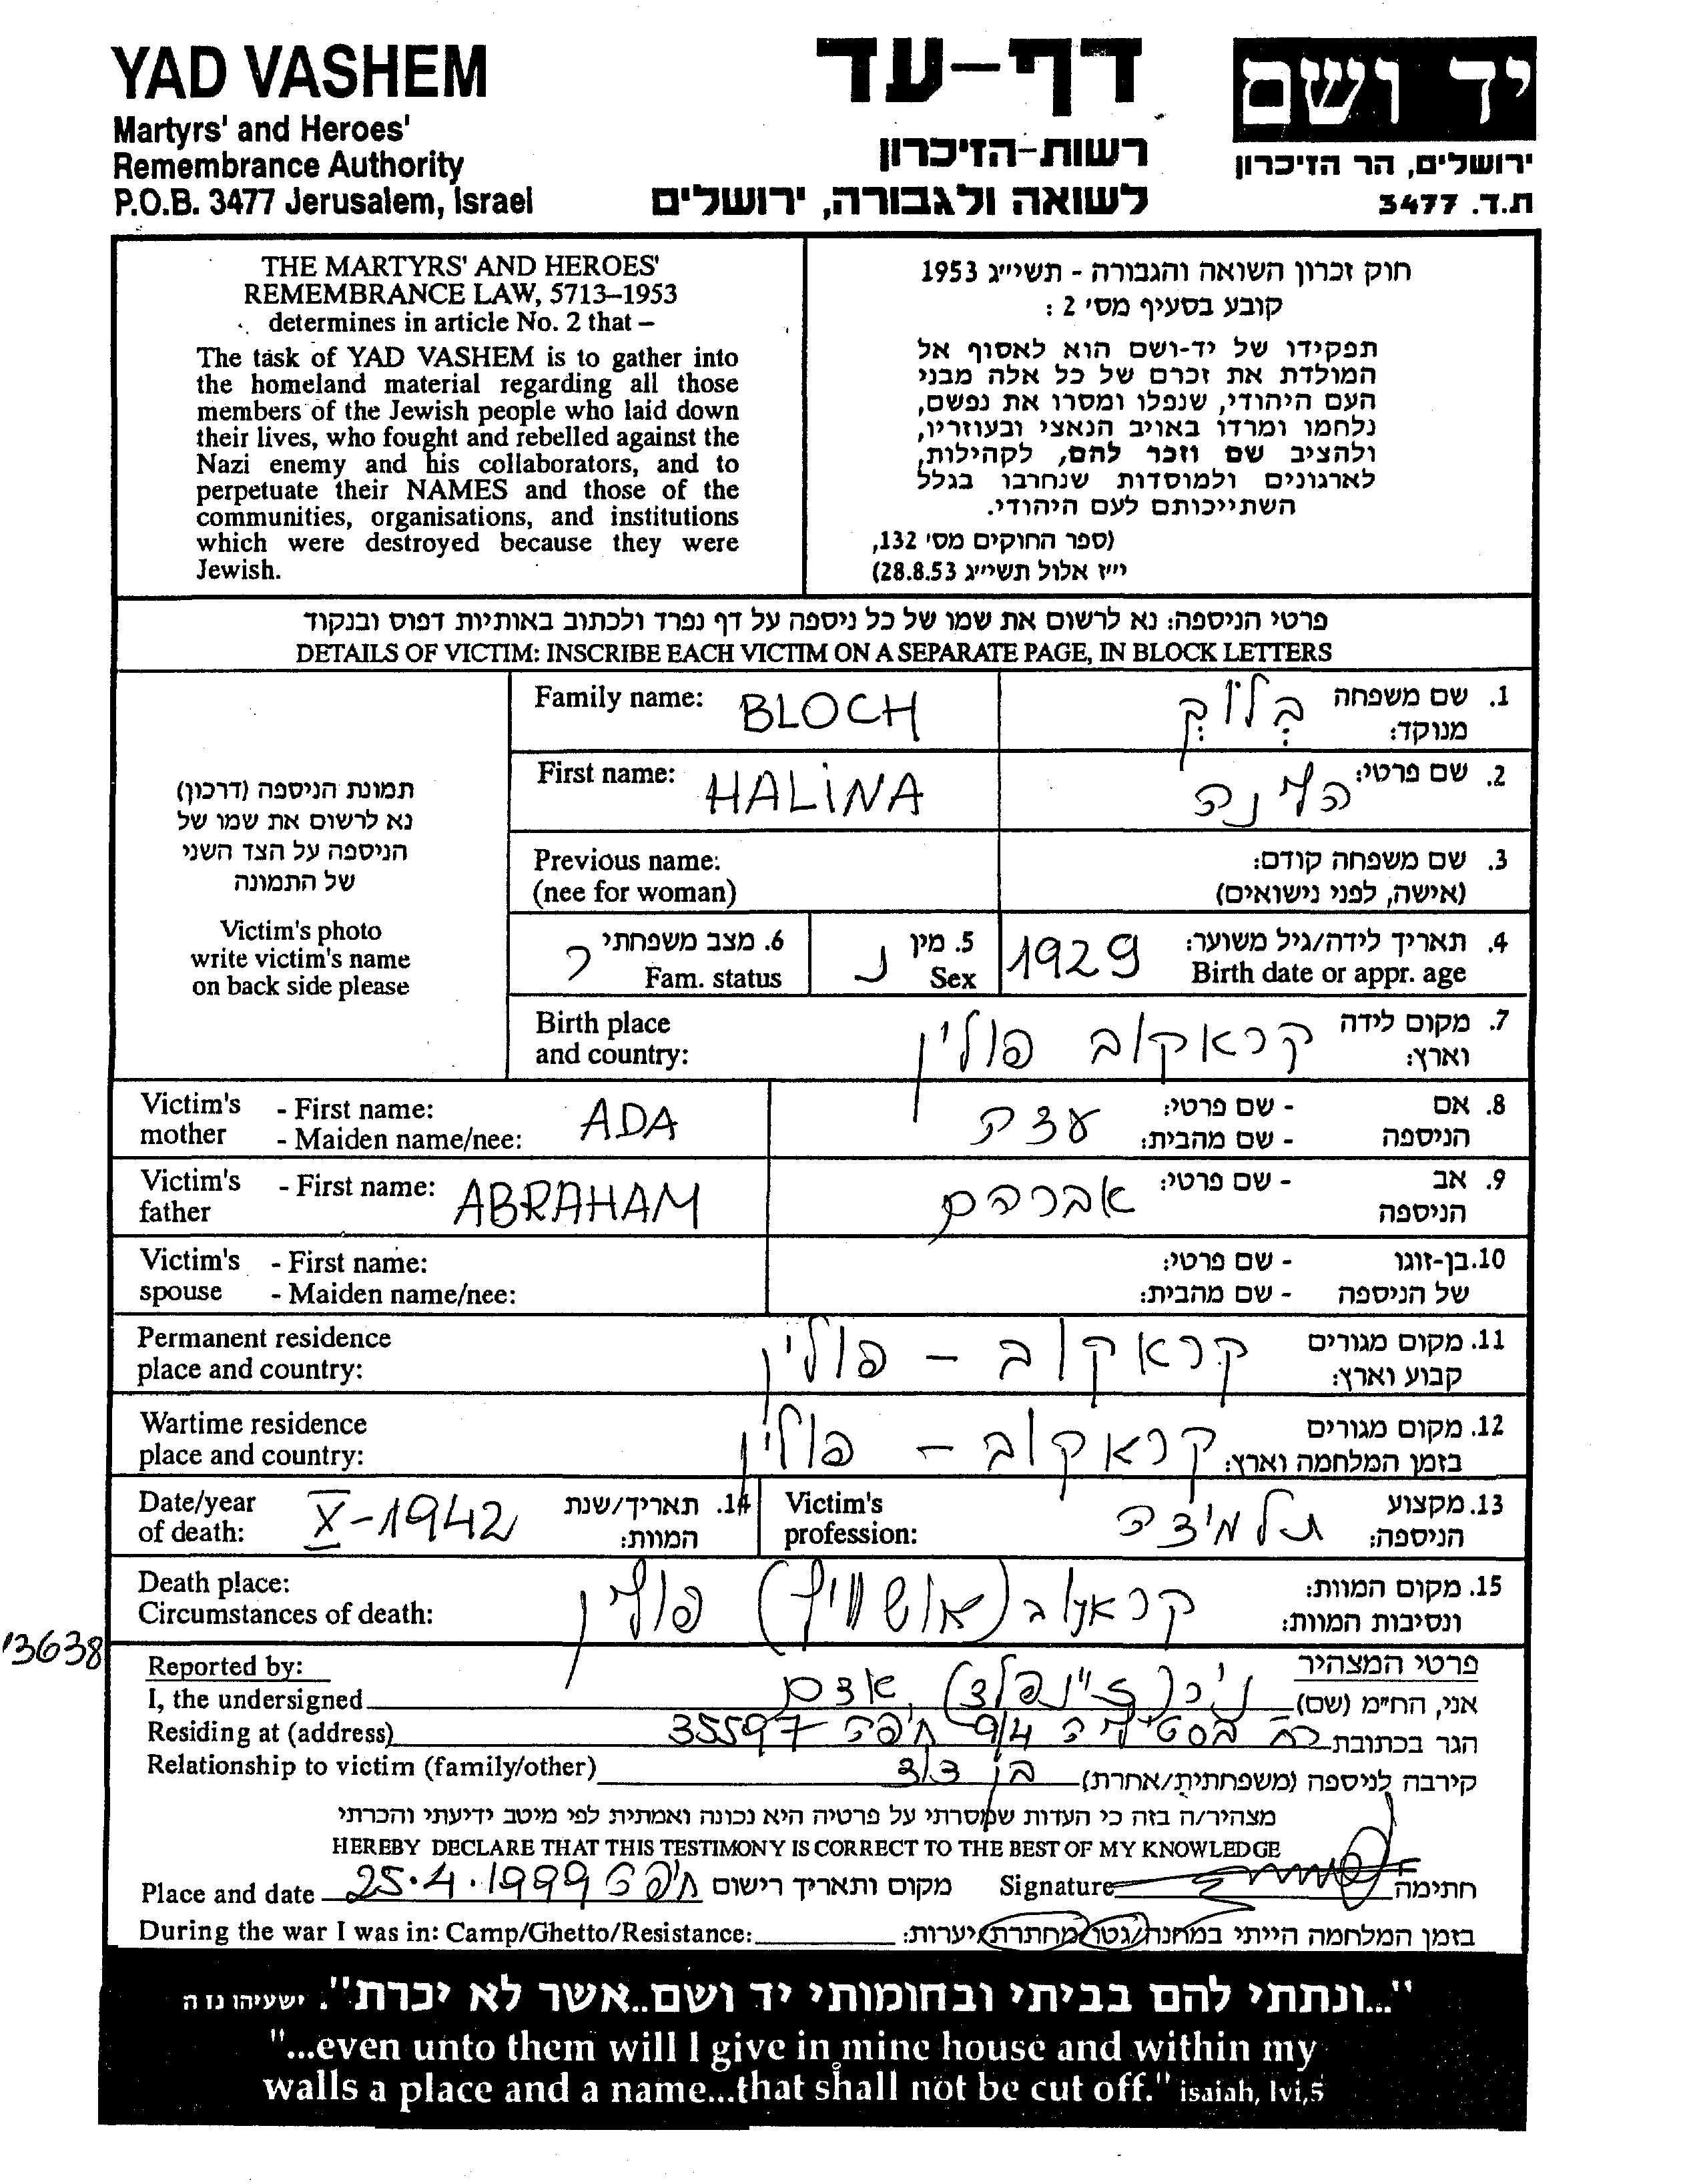 YAD VASHEM
Martyrs' and Heroes'
Remembrance Authority
P.O.B. 3477 Jerusalem, Israel
דף-עד
רשות-הזיכרון
לשואה ולגבורה, ירושלים
יד ושם
ירושלים, הר הזיכרון
ת.ד. 3477
THE MARTYRS' AND HEROES'
REMEMBRANCE LAW, 5713–1953
determines in article No. 2 that –
The task of YAD VASHEM is to gather into
the homeland material regarding all those
members of the Jewish people who laid down
their lives, who fought and rebelled against the
Nazi enemy and his collaborators, and to
perpetuate their NAMES and those of the
communities, organisations, and institutions
which were destroyed because they were
Jewish.
חוק זכרון השואה והגבורה - תשי״ג 1953
קובע בסעיף מס' 2 :
תפקידו של יד-ושם הוא לאסוף אל
המולדת את זכרם של כל אלה מבני
העם היהודי, שנפלו ומסרו את נפשם,
נלחמו ומרדו באויב הנאצי ובעוזריו,
ולהציב שם וזכר להם, לקהילות,
לארגונים ולמוסדות שנחרבו בגלל
השתייכותם לעם היהודי.
(ספר החוקים מס' 132,
י״ז אלול תשי״ג 28.8.53)
פרטי הניספה: נא לרשום את שמו של כל ניספה על דף נפרד ולכתוב באותיות דפוס ובנקוד
DETAILS OF VICTIM: INSCRIBE EACH VICTIM ON A SEPARATE PAGE, IN BLOCK LETTERS
תמונת הניספה (דרכון)
נא לרשום את שמו של
הניספה על הצד השני
של התמונה
Victim's photo
write victim's name
on back side please
Family name: BLOCH
1. שם משפחה מנוקד: בלוך
First name: HALINA
2. שם פרטי: הלינה
Previous name:
(nee for woman)
3. שם משפחה קודם:
(אישה, לפני נישואים)
4. תאריך לידה/גיל משוער: 1929
Birth date or appr. age
5. מין נ
Sex
6. מצב משפחתי ר
Fam. status
Birth place
and country:
7. מקום לידה וארץ: קראקוב פולין
Victim's mother - First name: ADA
- Maiden name/nee:
8. אם הניספה - שם פרטי: עדה
- שם מהבית:
Victim's father - First name: ABRAHAM
9. אב הניספה - שם פרטי: אברהם
Victim's spouse - First name:
- Maiden name/nee:
10. בן-זוגו של הניספה - שם פרטי:
- שם מהבית:
Permanent residence
place and country:
11. מקום מגורים קבוע וארץ: קראקוב - פולין
Wartime residence
place and country:
12. מקום מגורים בזמן המלחמה וארץ: קראקוב - פולין
Date/year
of death: X-1942
14. תאריך/שנת המוות:
Victim's
profession:
13. מקצוע הניספה: תלמידה
Death place:
Circumstances of death:
15. מקום המוות: ונסיבות המוות: קראקוב (אושוויץ) פולין
13638
Reported by:
פרטי המצהיר
I, the undersigned
אני, הח״מ (שם) אדם
Residing at (address)
הגר בכתובת 9/4 חיפה 35597
Relationship to victim (family/other)
קירבה לניספה (משפחתית/אחרת) בן דוד
מצהיר/ה בזה כי העדות שמסרתי על פרטיה היא נכונה ואמתית לפי מיטב ידיעתי והכרתי
HEREBY DECLARE THAT THIS TESTIMONY IS CORRECT TO THE BEST OF MY KNOWLEDGE
Place and date 25.4.1999 חיפה מקום ותאריך רישום
Signature חתימה
During the war I was in: Camp/Ghetto/Resistance:
בזמן המלחמה הייתי במחנה/גטו/מחתרת/יערות:
"...ונתתי להם בביתי ובחומותי יד ושם..אשר לא יכרת". ישעיהו נו ה
"...even unto them will I give in mine house and within my
walls a place and a name...that shall not be cut off." isaiah, lvi,5